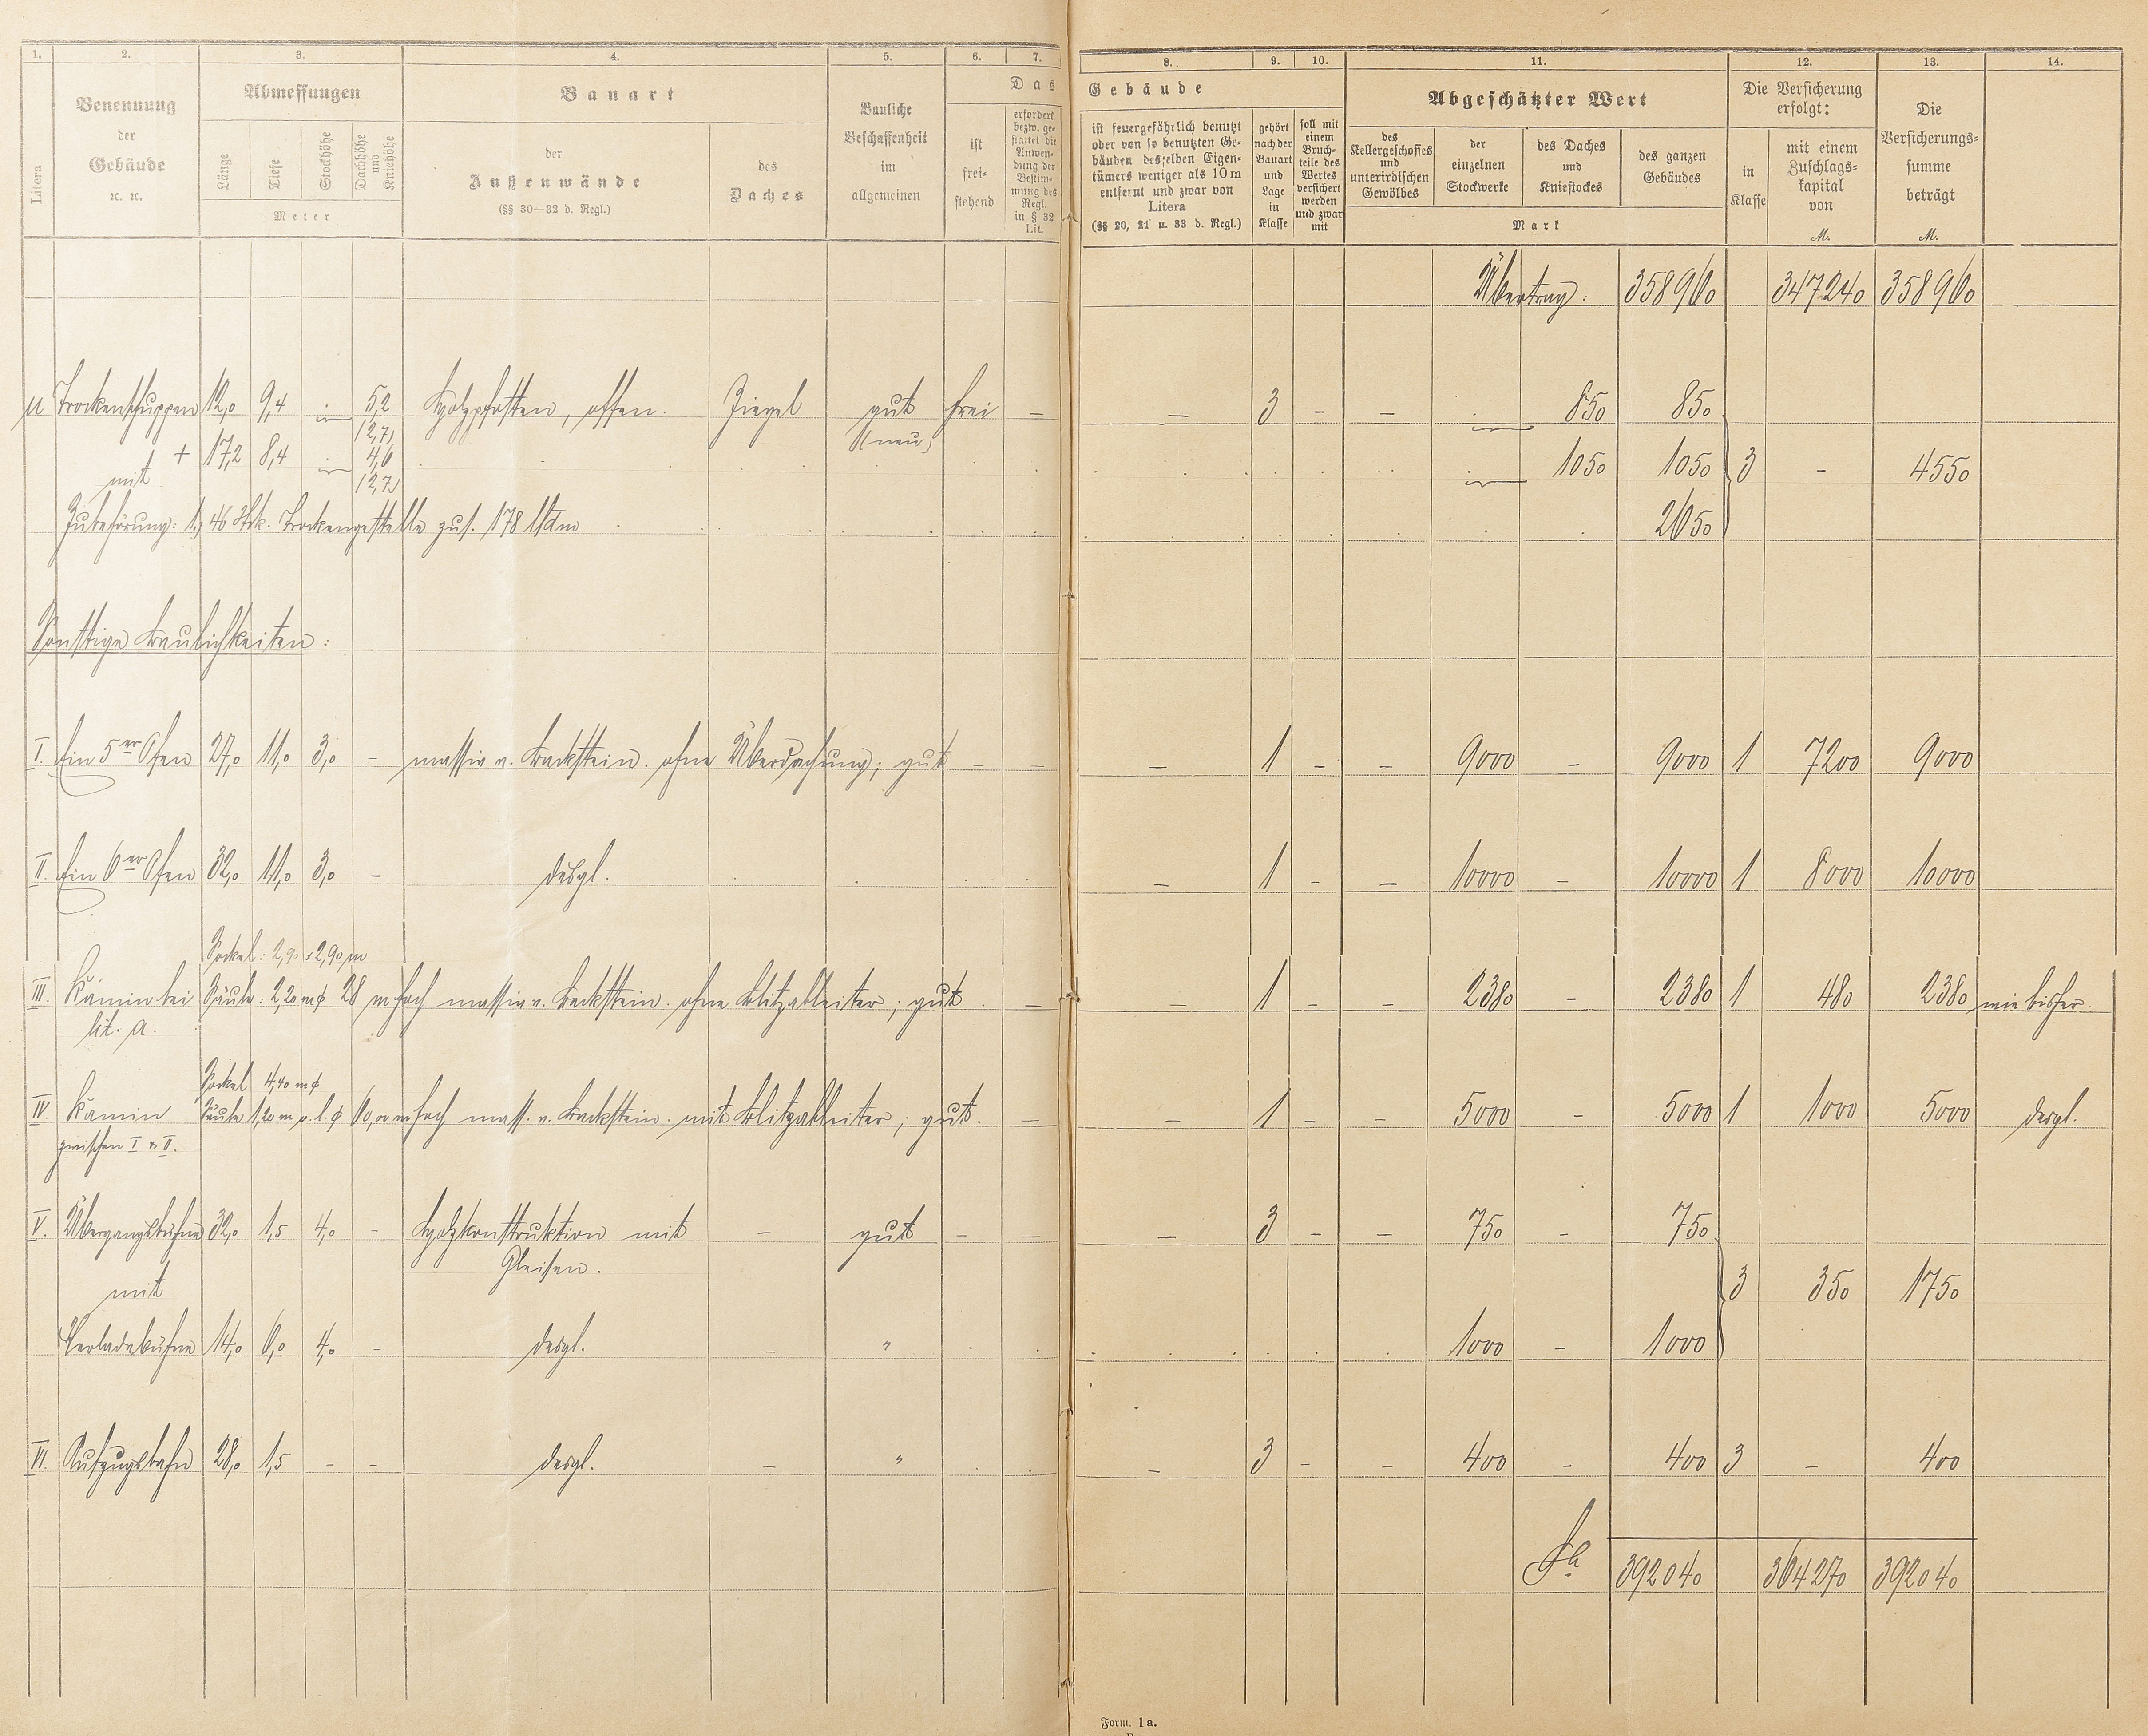 1. 2. 3. 4. 5. 6. 7. 8. 9. 10. 11. 12. 13. 14.
Litera
Benennung
der
Gebäude
ꝛc. ꝛc.
Abmessungen
Länge
Tiefe
Stockhöhe
Dachhöhe
und
Kniehöhe
Meter
Bauart
der
Außenwände
(§§ 30—32 d. Regl.)
des
Daches
Bauliche
Beschaffenheit
im
allgemeinen
Das
ist
frei-
stehend
erfordert
bezw. ge-
stattet die
Anwen-
dung der
Bestim-
mung des
Regl.
in § 32
Lit.
Gebäude
ist feuergefährlich benutzt
oder von so benutzten Ge-
bäuden desselben Eigen-
tümers weniger als 10 m
entfernt und zwar von
Litera
(§§ 20, 21 u. 33 d. Regl.)
gehört
nach der
Bauart
und
Lage
in
Klasse
soll mit
einem
Bruch-
teile des
Wertes
versichert
werden
und zwar
mit
Abgeschätzter Wert
des
Kellergeschosses
und
unterirdischen
Gewölbes
der
einzelnen
Stockwerke
des Daches
und
Kniestockes
des ganzen
Gebäudes
Mark
Die Versicherung
erfolgt:
in
Klasse
mit einem
Zuschlags-
kapital
von
M.
Die
Versicherungs-
summe
beträgt
M.
Übertrag: 358960 347240 358960
µ Trockenschuppen 12,0 9,4 5,2 Holzpfosten, offen. Ziegel gut frei – – 3 – – 850 850
(2,7) (neu)
+ 17,2 8,4 4,6 1050 1050 3 – 4550
mit (2,7)
Zubehörung: 1) 46 Stck. Trockengestelle zus. 178 lfdm 2650
Sonstige Baulichkeiten:
I. Ein 5er Ofen 27,0 11,0 3,0 – massiv v. Backstein. ohne Überdachung; gut – – – 1 – – 9000 – 9000 1 7200 9000
II. Ein 6er Ofen 32,0 11,0 3,0 – desgl. – 1 – – 10000 – 10000 1 8000 10000
Sockel: 2,90 x 2,90 m
III. Kamin bei Säule: 2,20 m ϕ 28 m hoch massiv v. Backstein. ohne Blitzableiter; gut – – 1 – – 2380 – 2380 1 480 2380 wie bisher.
lit. a.
Sockel 4,40 m ϕ
IV. Kamin Säule 1,20 m o. l. ϕ 60,00 m hoch mass. v. Backstein. mit Blitzableiter; gut. – – 1 – – 5000 – 5000 1 1000 5000 desgl.
zwischen I & II.
V. Übergangsbühne 32,0 1,5 4,0 – Holzkonstruktion mit – gut – – – 3 – – 750 – 750
Gleisen.
mit 3 350 1750
Verladebühne 14,0 6,0 4,0 – desgl. – " 1000 – 1000
VI. Aufzugsbahn 28,0 1,5 – – desgl. – " – 3 – – 400 – 400 3 – 400
Sa 392040 364270 392040
Form. 1a.